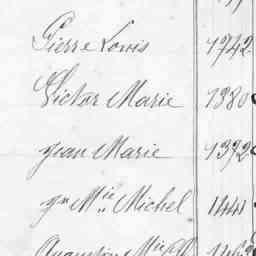 Pierre Louis 1742
Victor Marie 1380
Jean Marie 1392
Jn Mie Michel 1441
Augustin